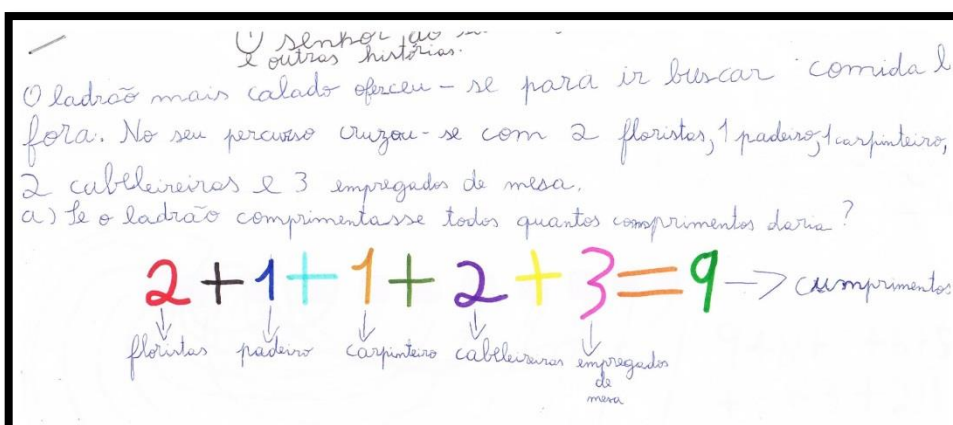 O senhor
e outras histórias.
O ladrão mais calado ofereceu-se para ir buscar comida l
fora. No seu percurso cruzou-se com 2 floristas, 1 padeiro, 1 carpinteiro,
2 cabeleireiras e 3 empregados de mesa.
a) Se o ladrão comprimentasse todos quantos comprimentos daria?
2+1+1+2+3=9 → cumprimentos
floristas padeiro carpinteiro cabeleireiras empregados
de
mesa